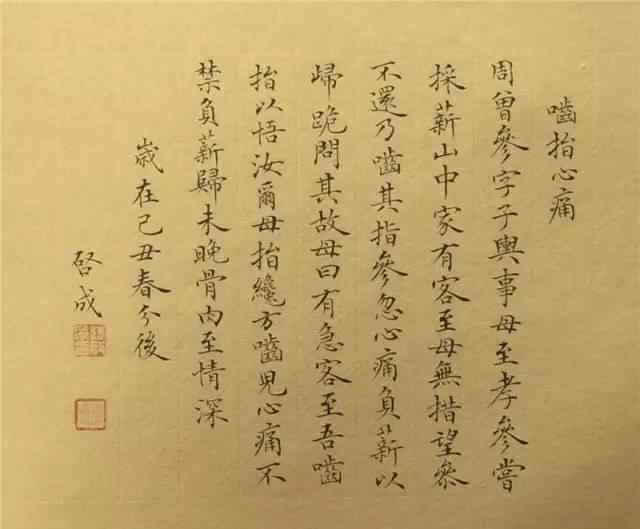 嚙指心痛
周曾參字子輿事母至孝參嘗
採薪山中家有客至母無措望參
不還乃嚙其指參忽心痛負薪以
歸跪問其故母曰有急客至吾嚙
指以悟汝爾母指纔方嚙兒心痛不
禁負薪歸未晚骨肉至情深
歲在己丑春分後
啓成